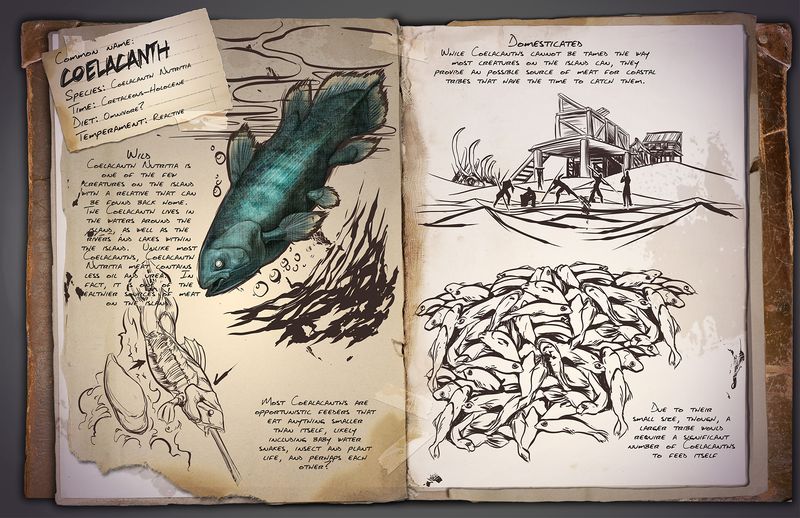 Common name:
Coelacanth
Species: Coelacanth Nutritia
Time: Cretaceous-Holocene
Diet: Omnivore?
Temperament: Reactive
Wild
Coelacanth Nutritia is
one of the few
creatures on the island
with a relative that can
be found back home.
The Coelacanth lives in
the waters around the
island, as well as the
rivers and lakes within
the island. Unlike most
Coelacanths, Coelacanth
Nutritia meat contains
less oil and urea. In
fact, it is one of the
healthier sources of meat
on the island.
Most Coealacanths are
opportunistic feeders that
eat anything smaller
than itself, likely
including baby water
snakes, insect and plant
life, and perhaps each
other?
Domesticated
While Coelacanths cannot be tamed the way
most creatures on the island can, they
provide an possible source of meat for coastal
tribes that have the time to catch them.
Due to their
small size, though, a
larger tribe would
require a significant
number of Coelacanths
to feed itself